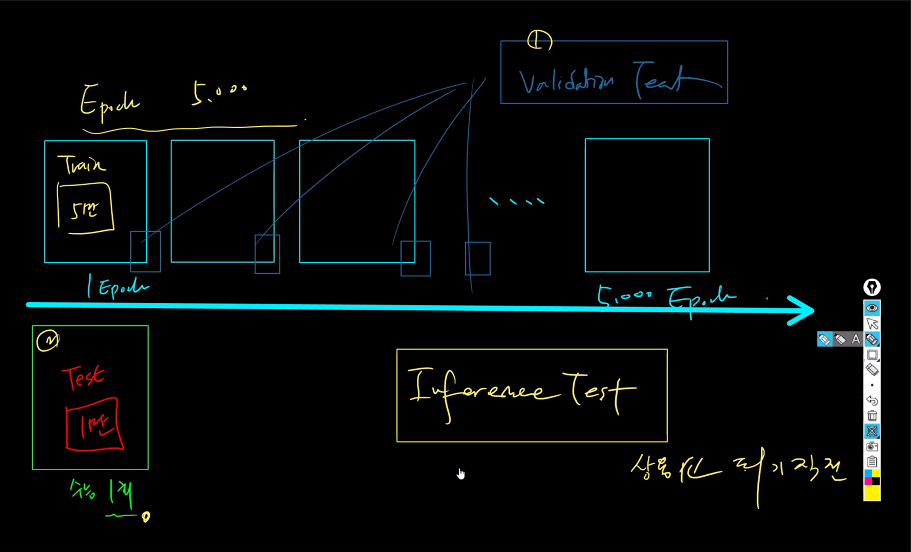 ①
Validation Test
Epoch 5.000
Train
5만
1 Epoch
5.000 Epoch
②
Test
1만
Inference Test
상용화 되기 직전
수능 1회
A